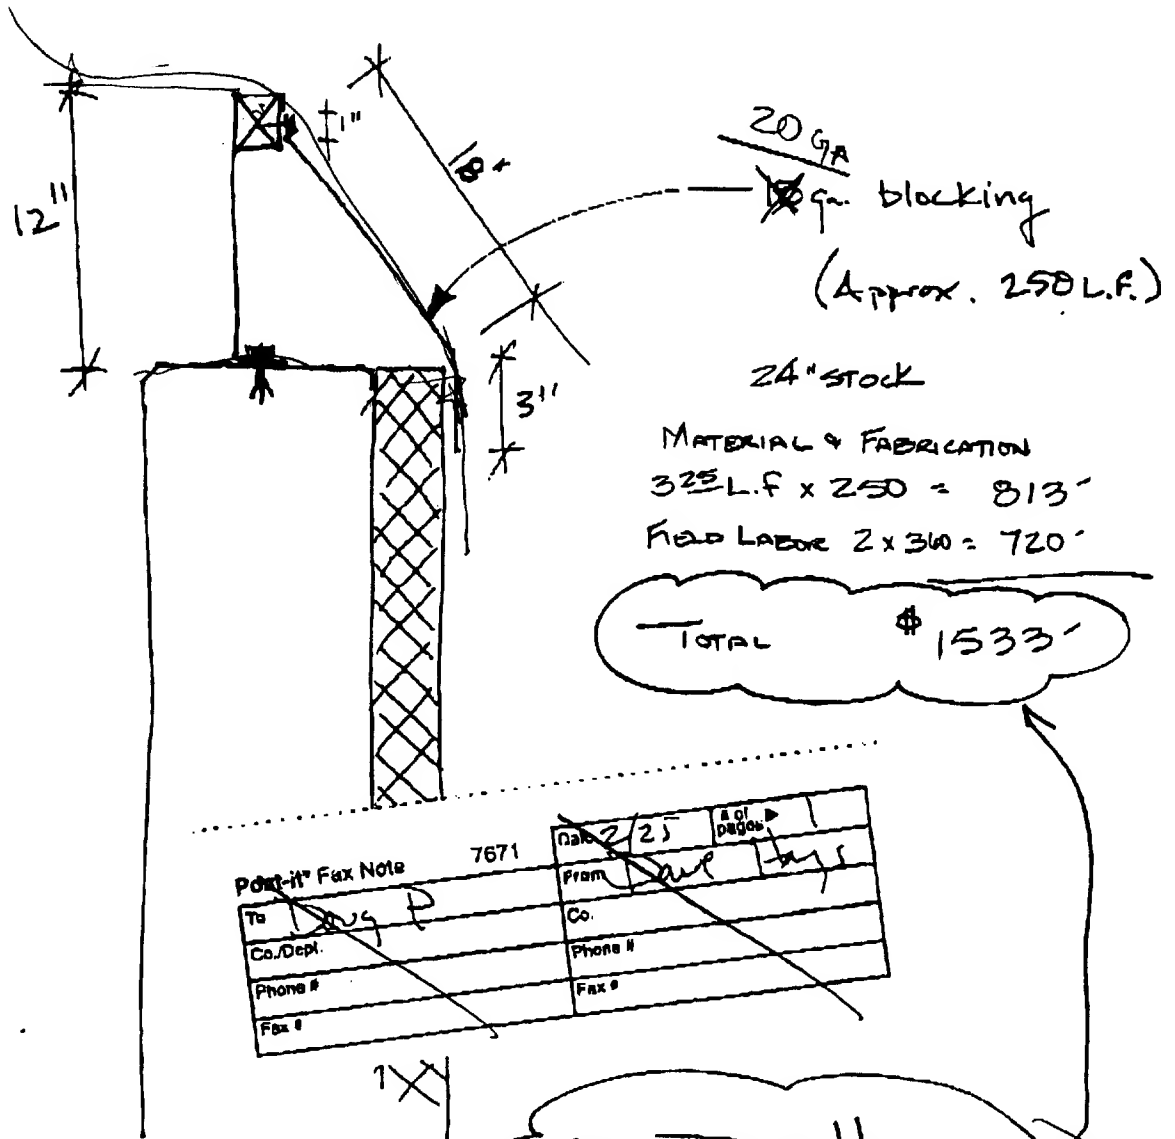 1"
18"±
12"
20 GA
ga. blocking
(Approx. 250 L.F.)
3"
24" STOCK
MATERIAL & FABRICATION
3 25 L.F x 250 = 813
FIELD LABOR 2 x 360 = 720
TOTAL $ 1533
Post-it" Fax Note 7671
Date 2/25
# of pages ▶ 1
To Doug P
From Dave Hays
Co./Dept.
Co.
Phone #
Phone #
Fax #
Fax #